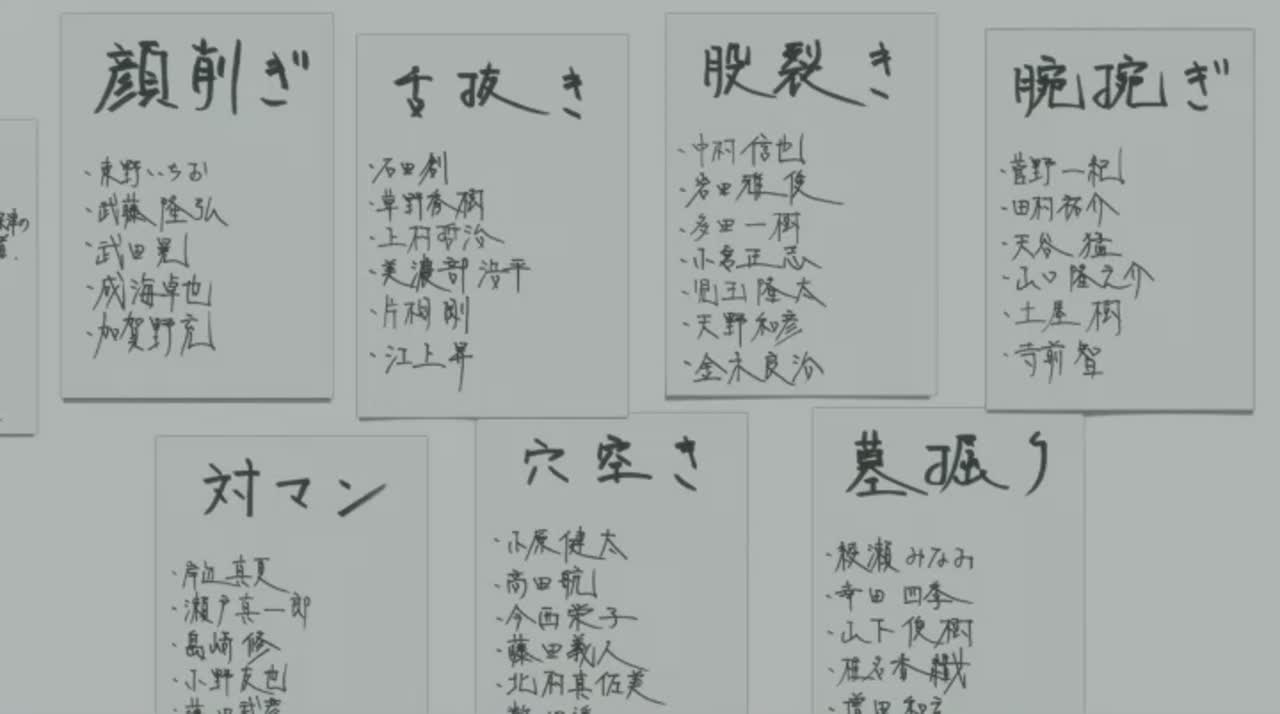 顔削ぎ
・東野いちお
・武藤隆弘
・武田晃
・成海卓也
・加賀野充
舌抜き
・石田創
・草野春樹
・上村哲治
・美濃部浩平
・片桐剛
・江上昇
股裂き
・中村信也
・岩田雅俊
・多田一樹
・小宮正志
・児玉隆太
・天野和彦
・金木良治
腕捥ぎ
・菅野一紀
・田村祐介
・天谷猛
・山口隆之介
・土屋樹
・寺前智
対マン
・岸辺真夏
・瀬戸真一郎
・島崎修
・小野友也
穴空き
・小原健太
・高田航
・今西栄子
・藤田義人
・北村真佐美
墓掘り
・綾瀬みなみ
・幸田四季
・山下俊樹
・椎名香織